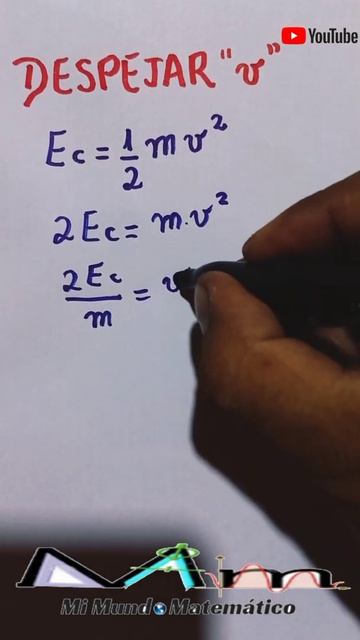 YouTube
DESPEJAR "v"
Ec = 1/2 m v²
2Ec = m.v²
2Ec/m = v
Mi Mundo Matemático